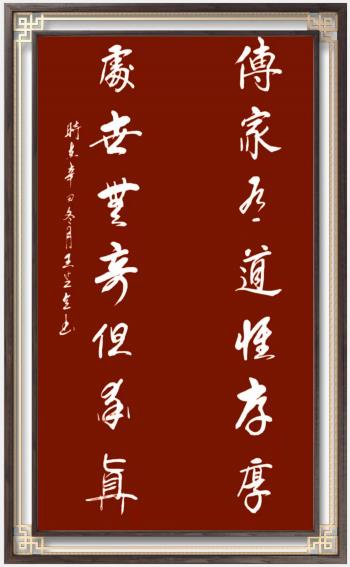 傳家有道惟存厚
處世無奇但率真
時在辛丑冬月王